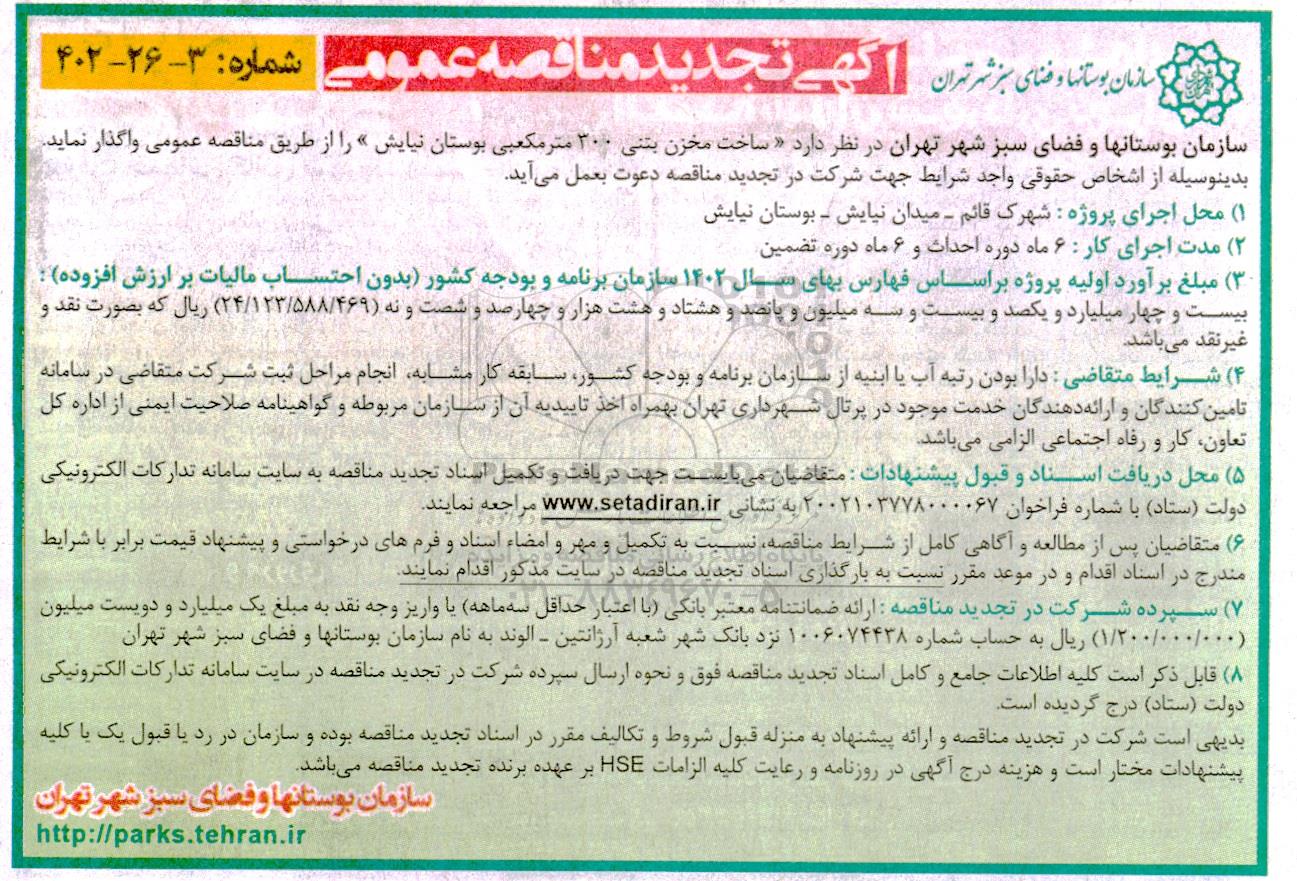 سازمان بوستانها و فضای سبز شهر تهران
آگهی تجدید مناقصه عمومی
شماره: ۳- ۲۶- ۴۰۲
سازمان بوستانها و فضای سبز شهر تهران در نظر دارد « ساخت مخزن بتنی ۳۰۰ مترمکعبی بوستان نیایش » را از طریق مناقصه عمومی واگذار نماید.
بدینوسیله از اشخاص حقوقی واجد شرایط جهت شرکت در تجدید مناقصه دعوت بعمل می‌آید.
۱) محل اجرای پروژه : شهرک قائم ـ میدان نیایش ـ بوستان نیایش
۲) مدت اجرای کار : ۶ ماه دوره احداث و ۶ ماه دوره تضمین
۳) مبلغ برآورد اولیه پروژه براساس فهارس بهای سال ۱۴۰۲ سازمان برنامه و بودجه کشور (بدون احتساب مالیات بر ارزش افزوده) :
بیست و چهار میلیارد و یکصد و بیست و سه میلیون و پانصد و هشتاد و هشت هزار و چهارصد و شصت و نه (۲۴/۱۲۳/۵۸۸/۴۶۹) ریال که بصورت نقد و
غیرنقد می‌باشد.
۴) شرایط متقاضی : دارا بودن رتبه آب یا ابنیه از سازمان برنامه و بودجه کشور، سابقه کار مشابه، انجام مراحل ثبت شرکت متقاضی در سامانه
تامین‌کنندگان و ارائه‌دهندگان خدمت موجود در پرتال شهرداری تهران بهمراه اخذ تاییدیه آن از سازمان مربوطه و گواهینامه صلاحیت ایمنی از اداره کل
تعاون، کار و رفاه اجتماعی الزامی می‌باشد.
۵) محل دریافت اسناد و قبول پیشنهادات : متقاضیان می‌بایست جهت دریافت و تکمیل اسناد تجدید مناقصه به سایت سامانه تدارکات الکترونیکی
دولت (ستاد) با شماره فراخوان ۲۰۰۲۱۰۳۷۷۸۰۰۰۰۶۷ به نشانی www.setadiran.ir مراجعه نمایند.
۶) متقاضیان پس از مطالعه و آگاهی کامل از شرایط مناقصه، نسبت به تکمیل و مهر و امضاء اسناد و فرم های درخواستی و پیشنهاد قیمت برابر با شرایط
مندرج در اسناد اقدام و در موعد مقرر نسبت به بارگذاری اسناد تجدید مناقصه در سایت مذکور اقدام نمایند.
۰۲۱-۸۸۳۴۹۶۷۰-۵
۷) سپرده شرکت در تجدید مناقصه : ارائه ضمانتنامه معتبر بانکی (با اعتبار حداقل سه‌ماهه) یا واریز وجه نقد به مبلغ یک میلیارد و دویست میلیون
(۱/۲۰۰/۰۰۰/۰۰۰) ریال به حساب شماره ۱۰۰۶۰۷۴۴۳۸ نزد بانک شهر شعبه آرژانتین ـ الوند به نام سازمان بوستانها و فضای سبز شهر تهران
۸) قابل ذکر است کلیه اطلاعات جامع و کامل اسناد تجدید مناقصه فوق و نحوه ارسال سپرده شرکت در تجدید مناقصه در سایت سامانه تدارکات الکترونیکی
دولت (ستاد) درج گردیده است.
بدیهی است شرکت در تجدید مناقصه و ارائه پیشنهاد به منزله قبول شروط و تکالیف مقرر در اسناد تجدید مناقصه بوده و سازمان در رد یا قبول یک یا کلیه
پیشنهادات مختار است و هزینه درج آگهی در روزنامه و رعایت کلیه الزامات HSE بر عهده برنده تجدید مناقصه می‌باشد.
سازمان بوستانها و فضای سبز شهر تهران
http://parks.tehran.ir